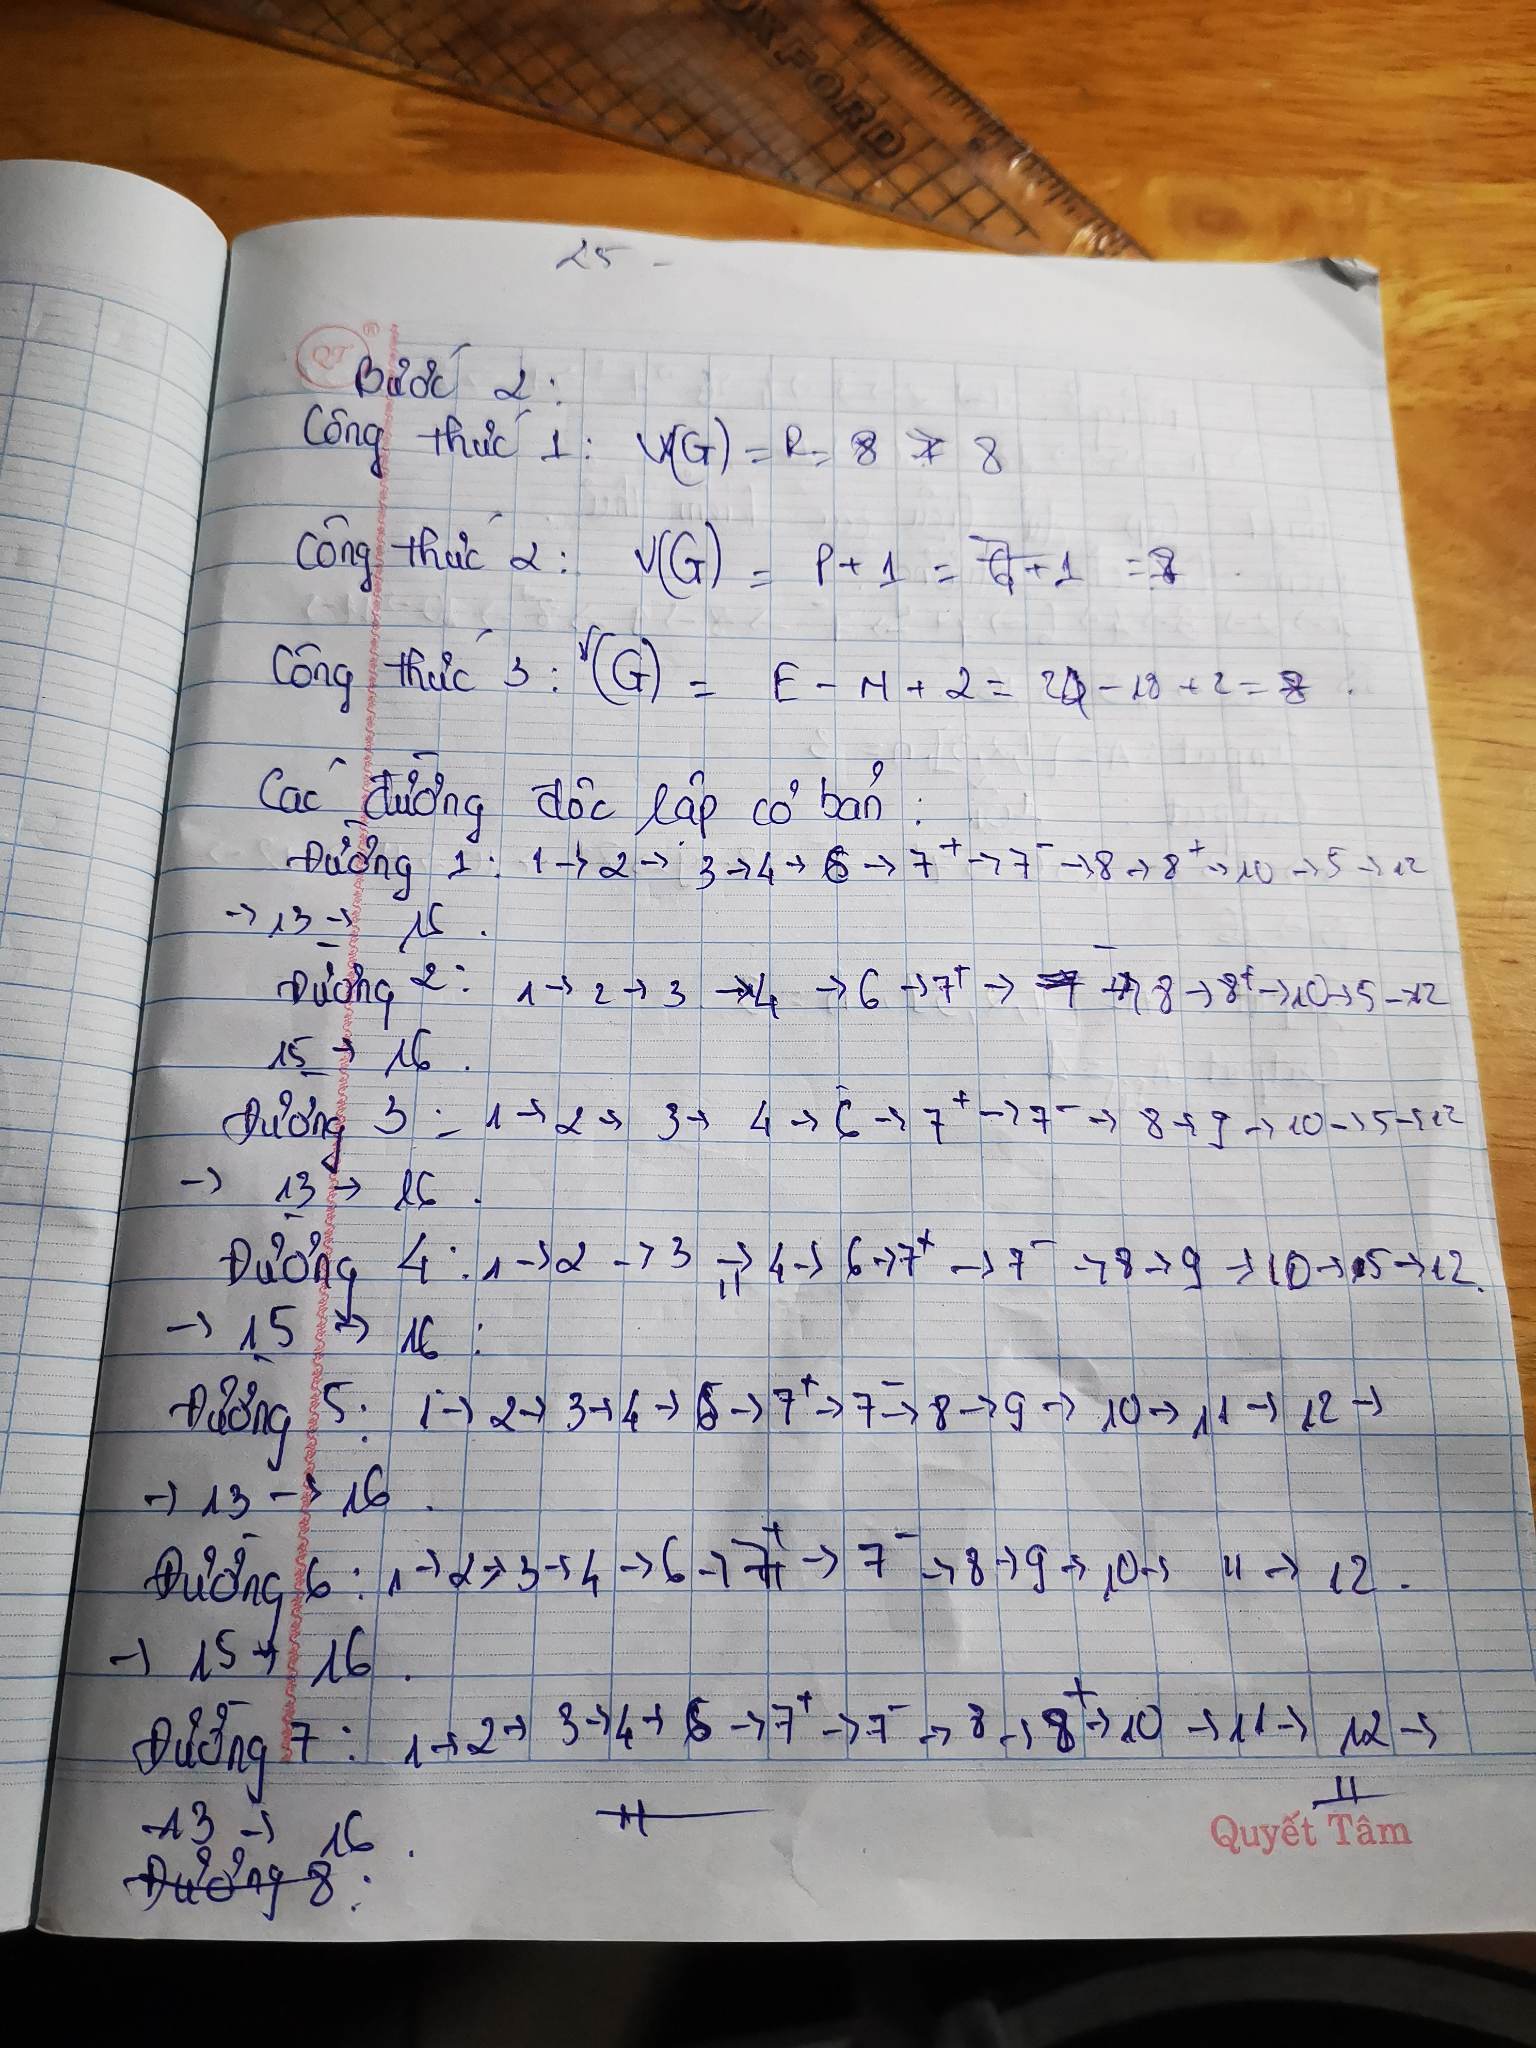 OXFORD
25 -
QT ®
Bước 2 :
Công thức 1 : V(G) = R = 8 7 8
Công thức 2 : V(G) = P + 1 = 7 + 1 = 8
Công thức 3 : V(G) = E - N + 2 = 24 - 18 + 2 = 8 .
Các đường độc lập cơ bản :
Đường 1 : 1 → 2 → 3 → 4 → 6 → 7⁺ → 7⁻ → 8 → 8⁺ → 10 → 5 → 12
→ 13 → 15 .
Đường 2 : 1 → 2 → 3 → 4 → 6 → 7⁺ → 7⁻ → 8 → 8⁺ → 10 → 5 → 12
15 → 16 .
Đường 3 : 1 → 2 → 3 → 4 → 6 → 7⁺ → 7⁻ → 8 → 9 → 10 → 5 → 12
→ 13 → 16 .
Đường 4 : 1 → 2 → 3 → 4 → 6 → 7⁺ → 7⁻ → 8 → 9 → 10 → 5 → 12 .
→ 15 → 16 :
Đường 5 : 1 → 2 → 3 → 4 → 6 → 7⁺ → 7⁻ → 8 → 9 → 10 → 11 → 12 →
→ 13 → 16 .
Đường 6 : 1 → 2 → 3 → 4 → 6 → 7⁺ → 7⁻ → 8 → 9 → 10 → 11 → 12 .
→ 15 → 16 .
Đường 7 : 1 → 2 → 3 → 4 → 6 → 7⁺ → 7⁻ → 8 → 8⁺ → 10 → 11 → 12 →
13 → 16 .
Quyết Tâm
Đường 8 :